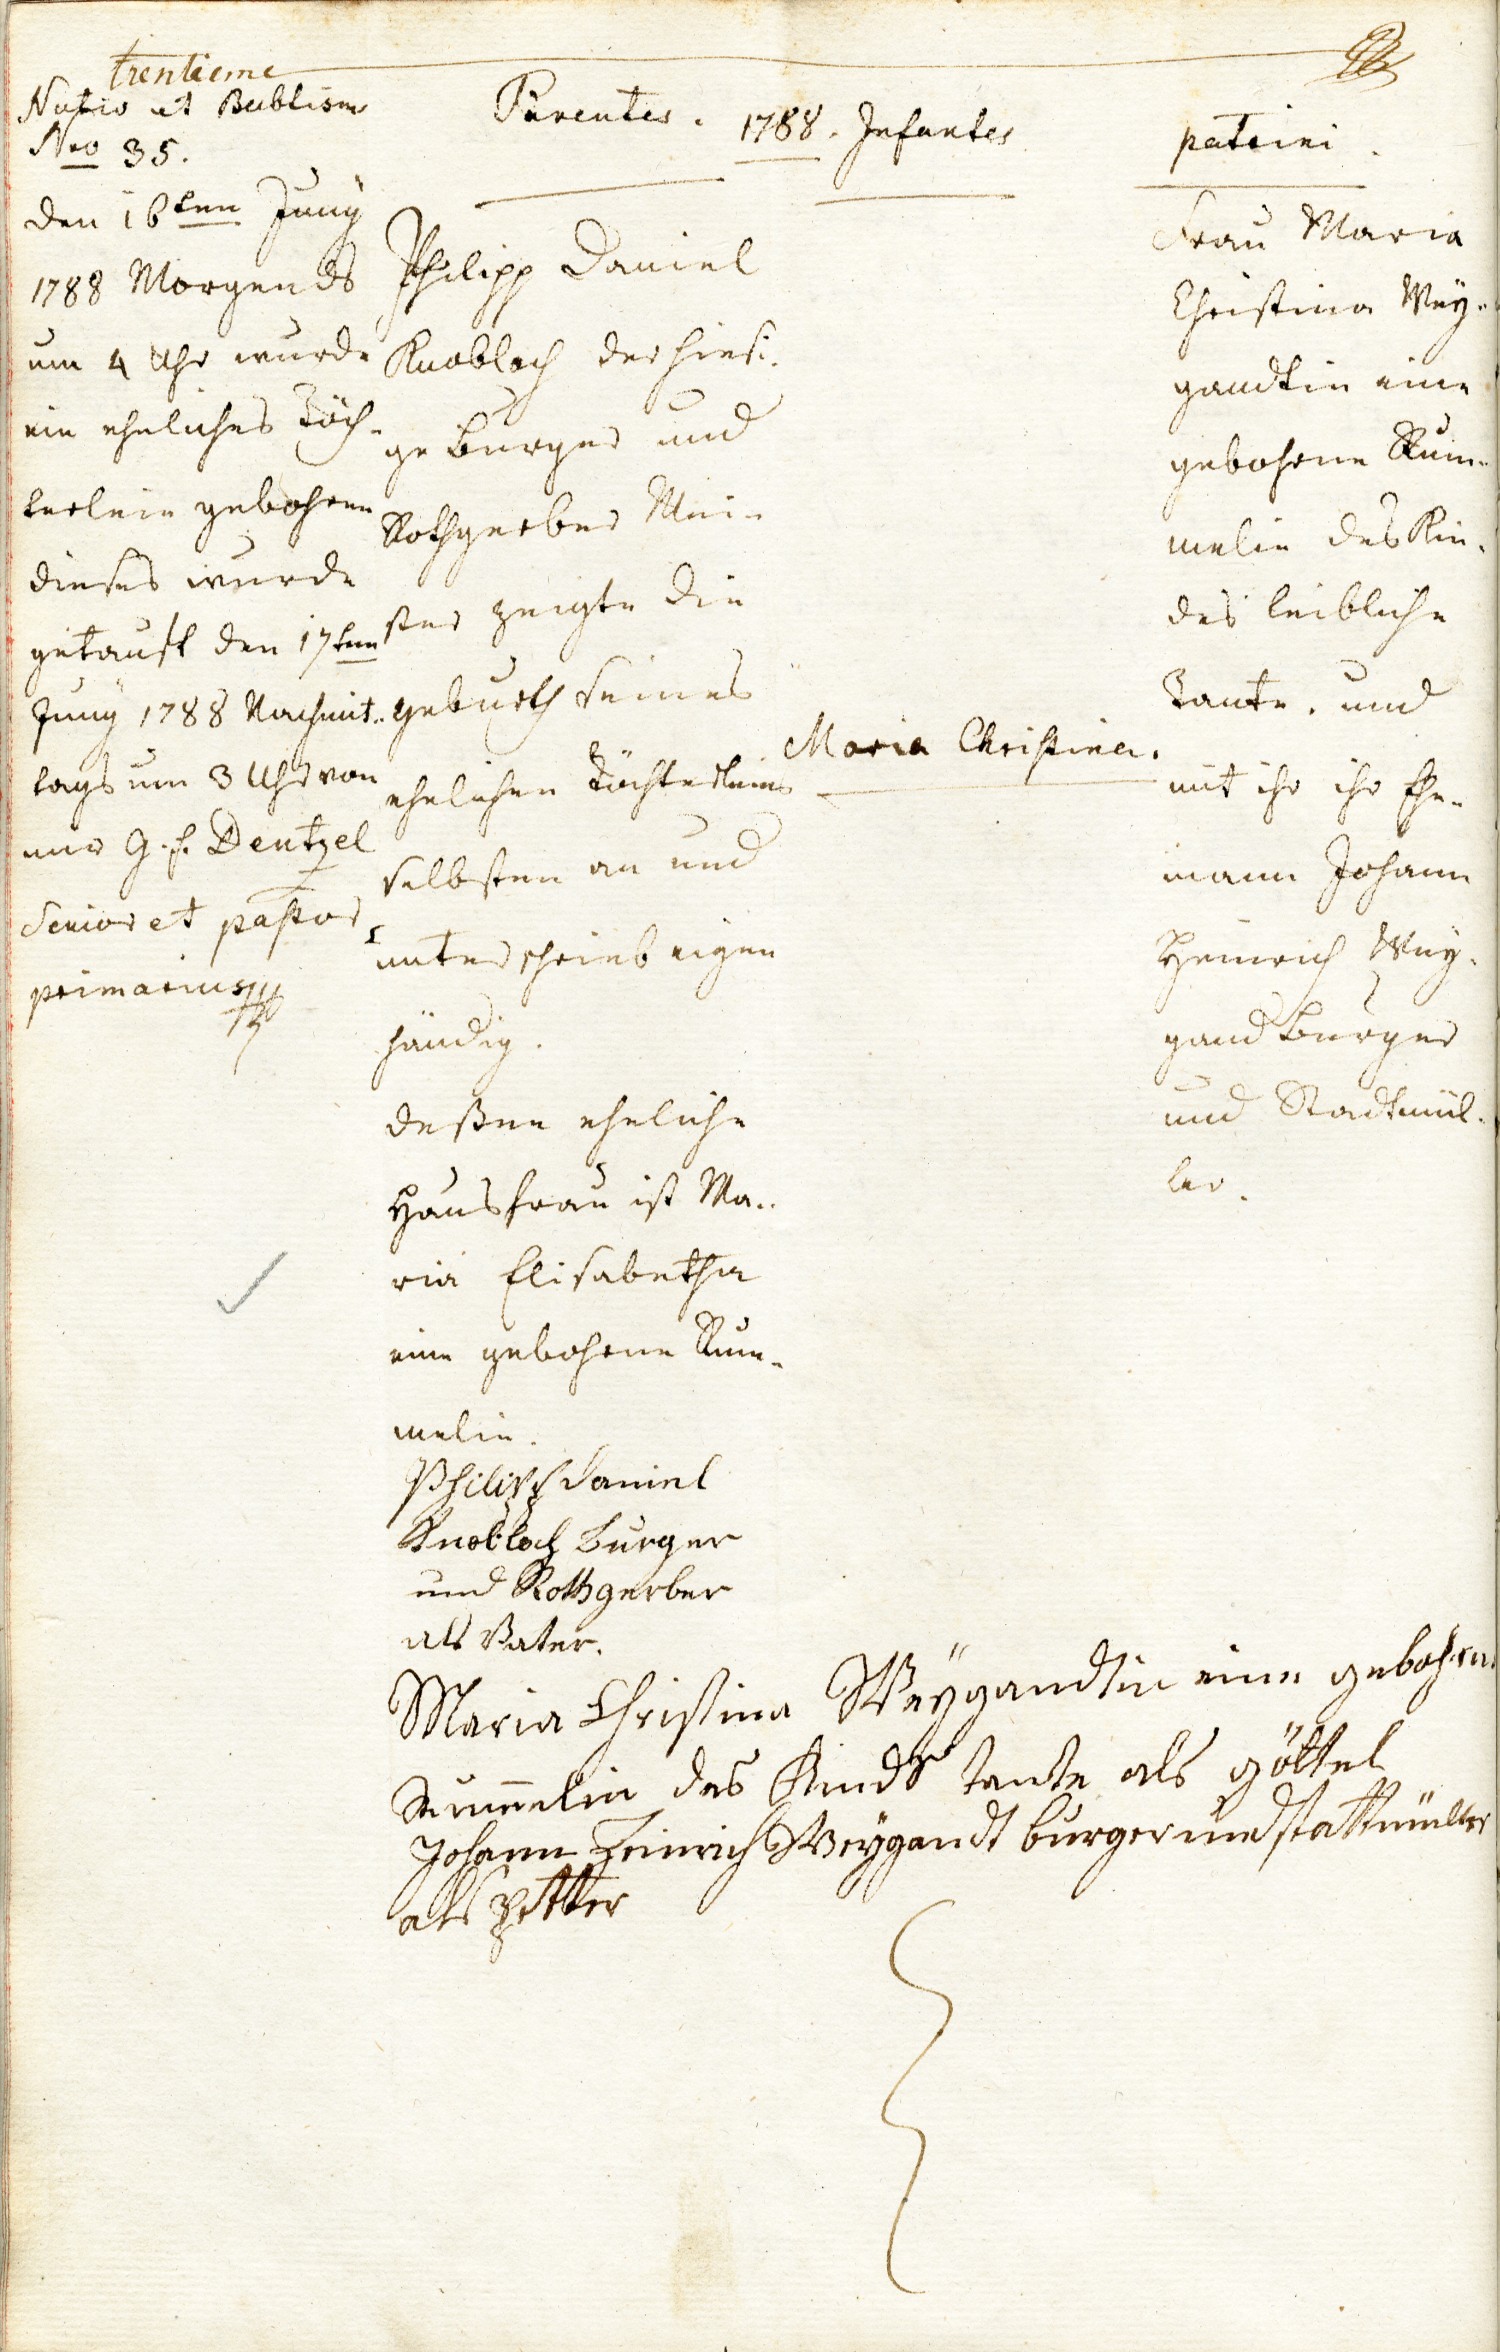 trentieme
Natio et Babtism
Nro 35.
den 16ten Juny
1788 Morgends
um 4 Uhr wurde
ein eheliches Töch-
terlein gebohren
dieses wurde
getauft den 17ten
Juny 1788 Nachmit-
tags um 3 Uhr von
mir G. F. Dentzel
Senior et pastor
primarius
Parentes.
Philipp Daniel
Knobloch der hiesi-
ge burger und
Rothgerber Mei-
ster zeigte die
geburth seines
ehelichen Töchterleins
selbsten an und
unterschrieb eigen
händig.
deßen eheliche
Hausfrau ist Ma-
ria Elisabetha
eine gebohrne Rum-
melin.
Philipp Daniel
Knobloch burger
und Rothgerber
als Vater.
1788. Infantes
Maria Christina.
patrini.
Frau Maria
Christina Wey-
gandtin eine
gebohrne Rum-
melin des Kin-
des leibliche
Tante. und
mit ihr ihr Ehe-
mann Johann
Heinrich Wey-
gand burger
und Stadtmül-
ler.
Maria Christina Weÿgandtin eine gebohrne
Rummelin des Kinds tante als göttel
Johann Heinrich Weÿgandt burger und stattmüller
als Petter